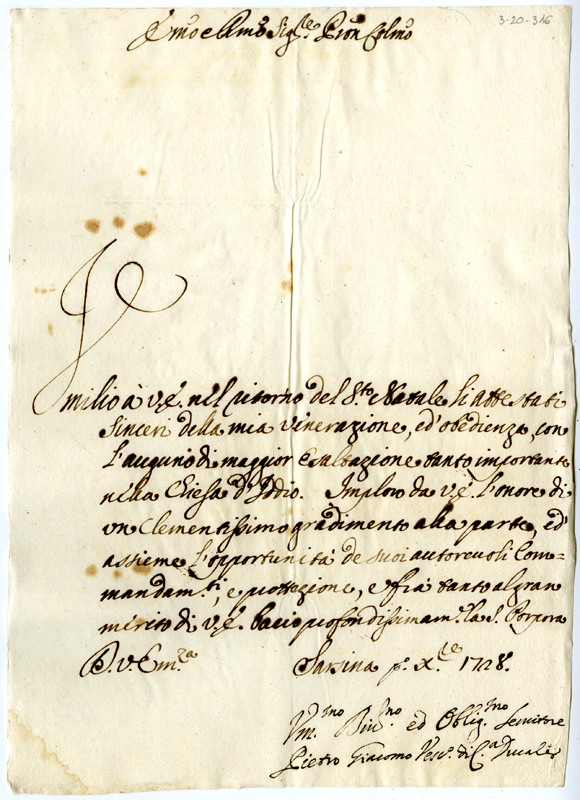 3-20-316
Emo e Rmo Sigre Pron Colmo
Umilio à V.E. nel ritorno del Sto Natale li attestati
sinceri della mia venerazione, ed' obedienza, con
l'augurio di maggior esaltazione tanto importante
nella Chiesa d'Iddio. Imploro da V.E. l'onore di
un Clementissimo gradimento alla parte, ed'
assieme l'opportunità de suoi autorevoli Com=
mandam.ti, e protezione, e
tanto al gran
merito di V.E. bacio profondissimam.te la S. Porpora
D. V. Em.za
Sarsina p.o X.bre 1728.
Um.mo Div.no ed Oblig.mo Servitore
Pietro Giacomo Vesc.o di